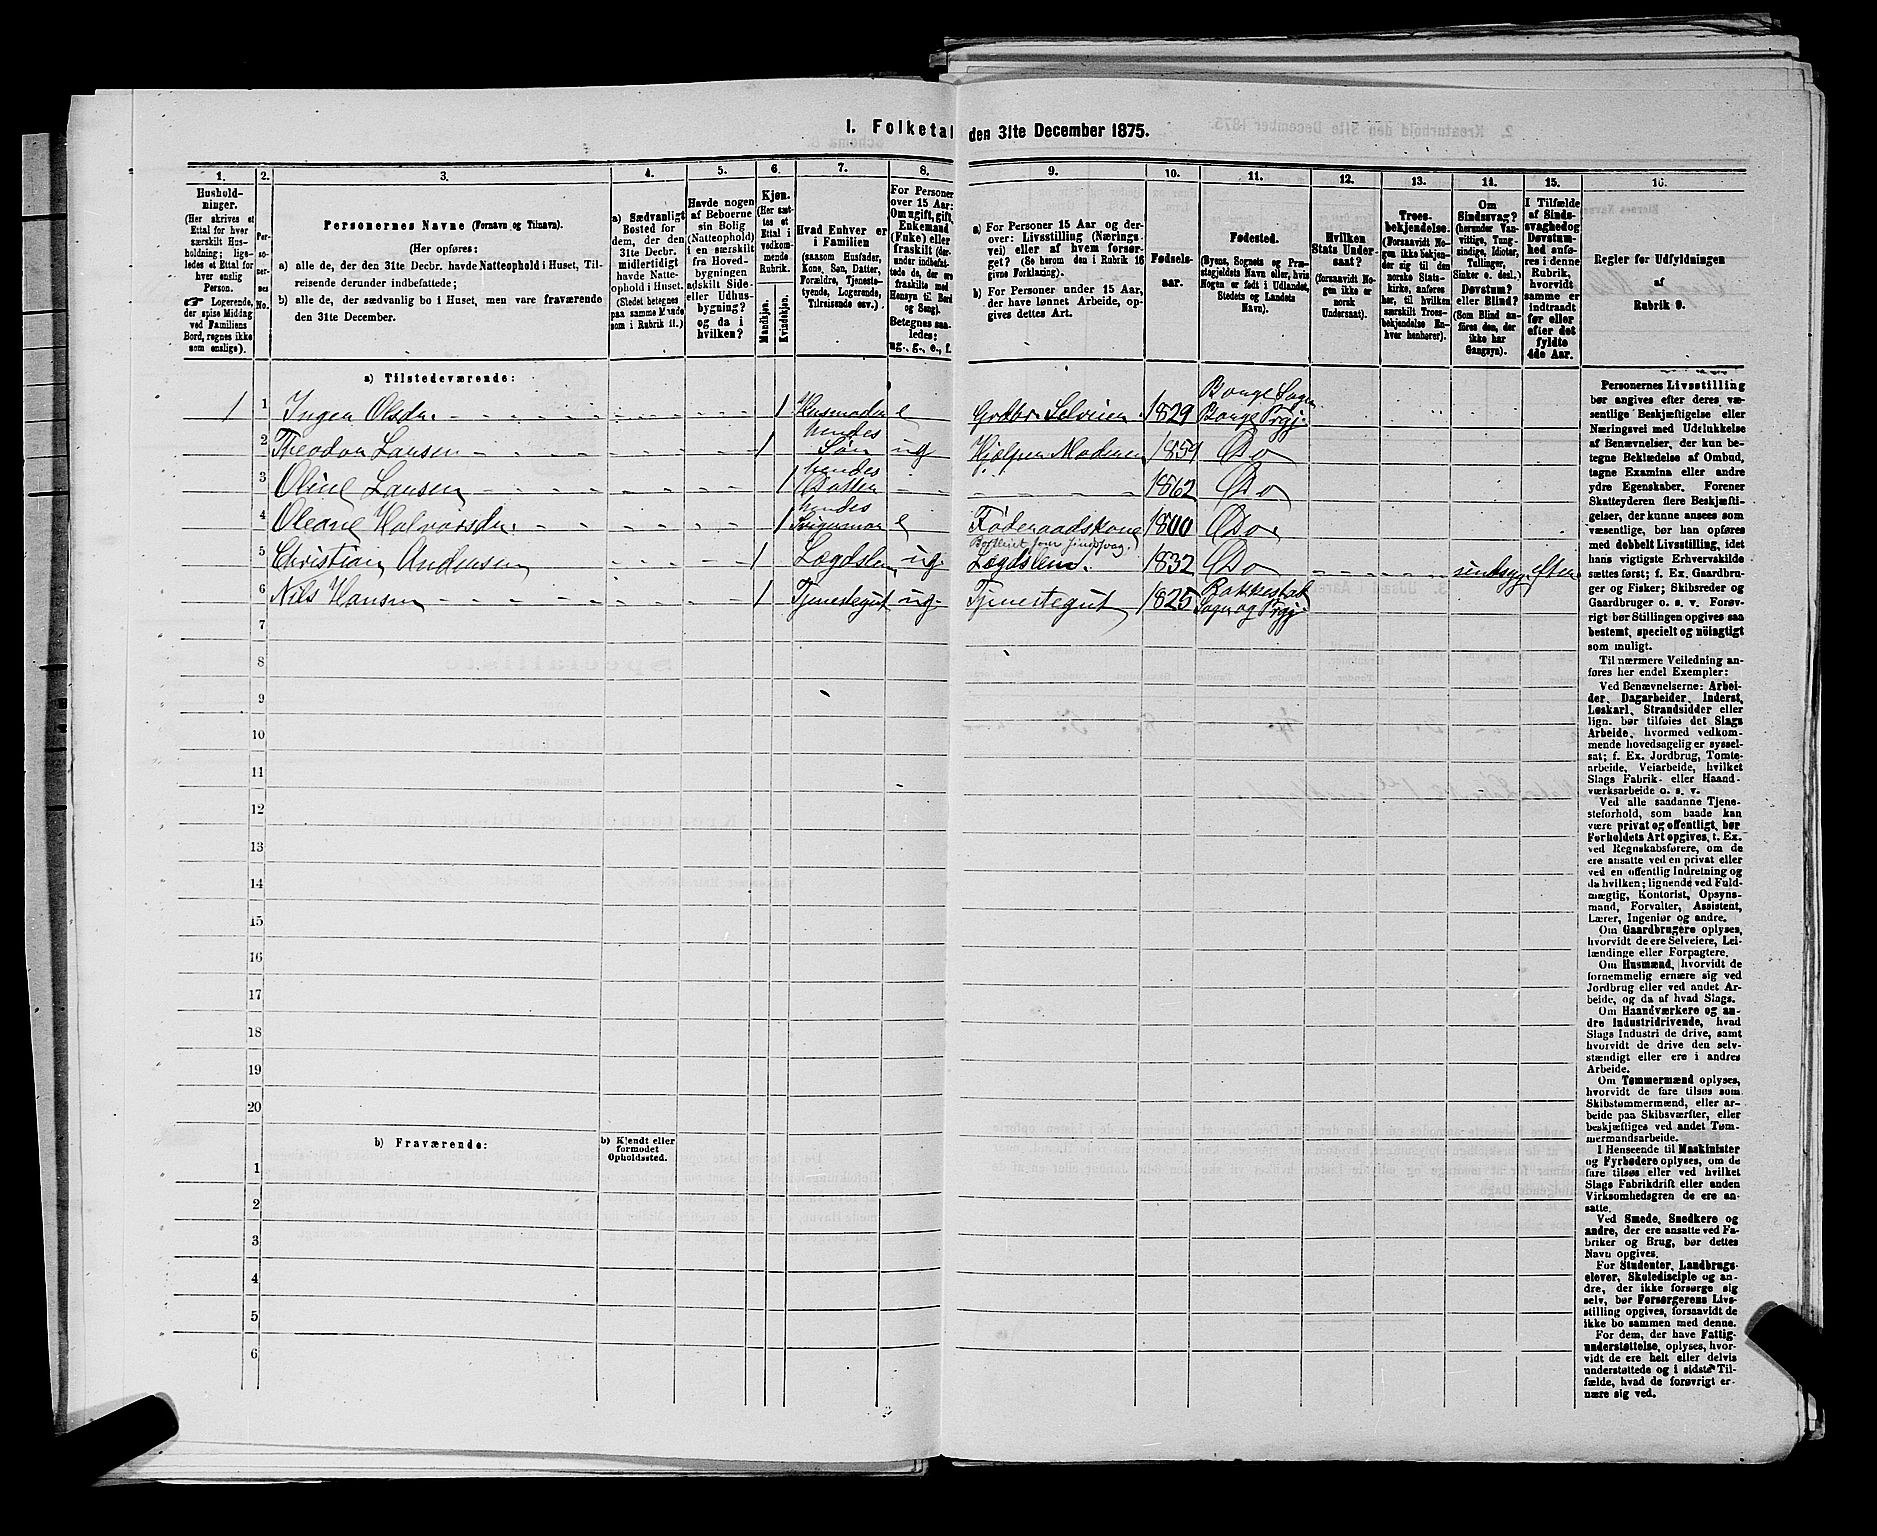 I. Folketal den 31te December 1875.
1. 2. 3. 4. 5. 6. 7. 8. 9. 10. 11. 12. 13. 14. 15. 16.
Hushold-
ninger.
(Her skrives et
Ettal for hver
særskilt Hus-
holdning; lige-
ledes et Ettal for
hver enslig
Person.
☛ Logerende,
der spise Middag
ved Familiens
Bord, regnes ikke
som enslige).
Per-
so-
ner-
nes
No.
Personernes Navne (Fornavn og Tilnavn).
(Her opføres:
a) alle de, der den 31te Decbr. havde Natteophold i Huset, Til-
reisende derunder indbefattede;
b) alle de, der sædvanlig bo i Huset, men vare fraværende
den 31te December.
a) Sædvanligt
Bosted for
dem, der den
31te Decbr.
midlertidigt
havde Natte-
ophold i Huset.
(Stedet betegnes
paa samme Maade
som i Rubrik 11.)
Havde nogen
af Beboerne
sin Bolig
(Natteophold)
i en særskilt
fra Hoved-
bygningen
adskilt Side-
eller Udhus-
bygning?
og da i
hvilken?
Kjøn.
(Her sæt-
tes et
Ettal i
vedkom-
mende
Rubrik.
Mandkjøn.
Kvindekjøn.
Hvad Enhver er
i Familien
(saasom Husfader,
Kone, Søn, Datter,
Forældre, Tjeneste-
tyende, Logerende,
Tilreisende osv.)
For Personer
over 15 Aar:
Om ugift, gift,
Enkemand
(Enke) eller
fraskilt (der-
under indbefat-
tede de, der ere
fraskilte med
Hensyn til Bord
og Seng).
Betegnes saa-
ledes:
ug., g., e., f.
a) For Personer 15 Aar og der-
over: Livsstilling (Nærings-
vei) eller af hvem forsør-
get? (Se herom den i Rubrik 16
givne Forklaring).
b) For Personer under 15 Aar,
der have lønnet Arbeide, op-
gives dettes Art.
Fødsels-
aar.
Fødested.
(Byens, Sognets og Præ-
stegjeldets Navn eller, hvis
Nogen er født i Udlandet,
Stedets og Landets
Navn).
Hvilken
Stats Under-
saat?
(forsaavidt No-
gen ikke er
norsk
Undersaat).
Troes-
bekjendelse.
(Forsaavidt No-
gen ikke bekjen-
der sig til den
norske Stats-
kirke, anføres
her, til hvilken
særskilt Troes-
bekjendelse En-
hver henhører).
Om
Sindssvag?
(herunder Van-
vittige, Tung-
sindige, Idioter,
Tullinger,
Sinker o. desl.)
Døvstum?
eller Blind?
(Som Blind an-
føres den, der
ikke har
Gangsyn).
I Tilfælde
af Sinds-
svaghed og
Døvstum-
hed anfø-
res i denne
Rubrik,
hvorvidt
samme er
indtraadt
før eller
efter det
fyldte
4de Aar.
Regler for Udfyldningen
af
Rubrik 9.
a) Tilstedeværende:
1 1 Inger Olsdr. 1 Husmoder e Grdbr. Selveier. 1829 Borge Sogn Borge Prgj.
2 Theodor Larsen 1 hendes Søn ug Hjælper Moderen 1859 Do
3 Oline Larsen 1 hendes Datter 1862 Do
4 Oleane Halvorsdr. 1 hendes Svigermor e Føderaadskone 1800 Do.
5 Christian Andersen 1 Lægdslem ug. Lægdslem. 1832 Do sindssyg efter
6 Nils Hansen 1 Tjenestegut ug. Tjenestegut 1825 Rakkestad Sogn og Prgj.
7
8
9
10
11
12
13
14
15
16
17
18
19
20
b) Fraværende:
b) Kjendt eller
formodet
Opholdssted.
1
2
3
4
5
6
Personernes Livsstilling
bør angives efter deres væ-
sentlige Beskjæftigelse eller
Næringsvei med Udelukkelse
af Benævnelser, der kun be-
tegne Beklædelse af Ombud,
tagne Examina eller andre
ydre Egenskaber. Forener
Skatteyderen flere Beskjæfti-
gelser, der kunne ansees som
væsentlige, bør han opføres
med dobbelt Livsstilling, idet
hans vigtigste Erhvervskilde
sættes først; f. Ex. Gaardbru-
ger og Fisker; Skibsreder og
Gaardbruger o. s. v. Forøv-
rigt bør Stillingen opgives saa
bestemt, specielt og nöiagtigt
som muligt.
Til nærmere Veiledning an-
føres her endel Exempler:
Ved Benævnelserne: Arbei-
der, Dagarbeider, Inderst,
Løskarl, Strandsidder eller
lign. bør tilføies det Slags
Arbeide, hvormed vedkom-
mende hovedsagelig er syssel-
sat; f. Ex. Jordbrug, Tomte-
arbeide, Veiarbeide, hvilket
Slags Fabrik- eller Haand-
værksarbeide o. s. v.
Ved alle saadanne Tjene-
steforhold, som baade kan
være privat og offentligt, bør
Forholdets Art opgives, t. Ex.
ved Regnskabsførere, om de
ere ansatte ved en privat eller
ved en offentlig Indretning og
da hvilken; lignende ved Fuld-
mægtig, Kontorist, Opsyns-
mand, Forvalter, Assistent,
Lærer, Ingeniør og andre.
Om Gaardbrugere oplyses,
hvorvidt de ere Selveiere, Lei-
lændinge eller Forpagtere.
Om Husmænd, hvorvidt de
fornemmelig ernære sig ved
Jordbrug eller ved andet Ar-
beide, og da af hvad Slags.
Om Haandværkere og an-
dre Industridrivende, hvad
Slags Industri de drive, samt
hvorvidt de drive den selv-
stændigt eller ere i andres
Arbeide.
Om Tømmermænd oplyses,
hvorvidt de fare tilsøs som
Skibstømmermænd, eller ar-
beide paa Skibsværfter, eller
beskjæftiges ved andet Tøm-
mermandsarbeide.
I Henseende til Maskinister
og Fyrbødere oplyses, om de
fare tilsøs eller ved hvilket
Slags Fabrikdrift eller anden
Virksomhedsgren de ere an-
satte.
Ved Smede, Snedkere og
andre, der ere ansatte ved Fa-
briker og Brug, bør dettes
Navn opgives.
For Studenter, Landbrugs-
elever, Skoledisciple og an-
dre, der ikke forsørge sig
selv, bør Forsørgerens Livs-
stilling opgives, forsaavidt de
ikke bo sammen med denne.
For dem, der have Fattig-
understøttelse, oplyses, hvor-
vidt de ere helt eller delvis
understøttede og i sidste Til-
fælde, hvad de forøvrigt er-
nære sig ved.